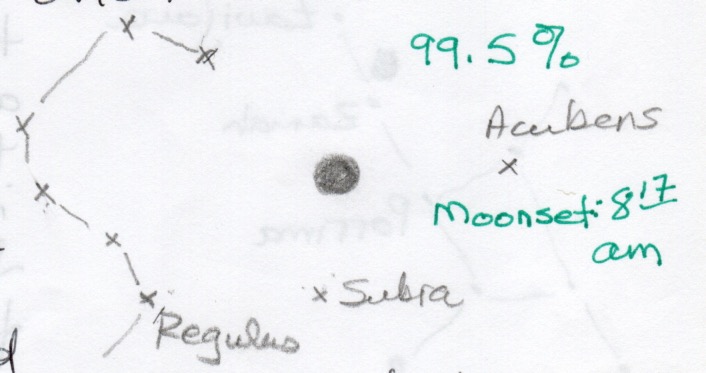 99.5%
Acubens
Moonset: 8:17
am
Subra
Regulus